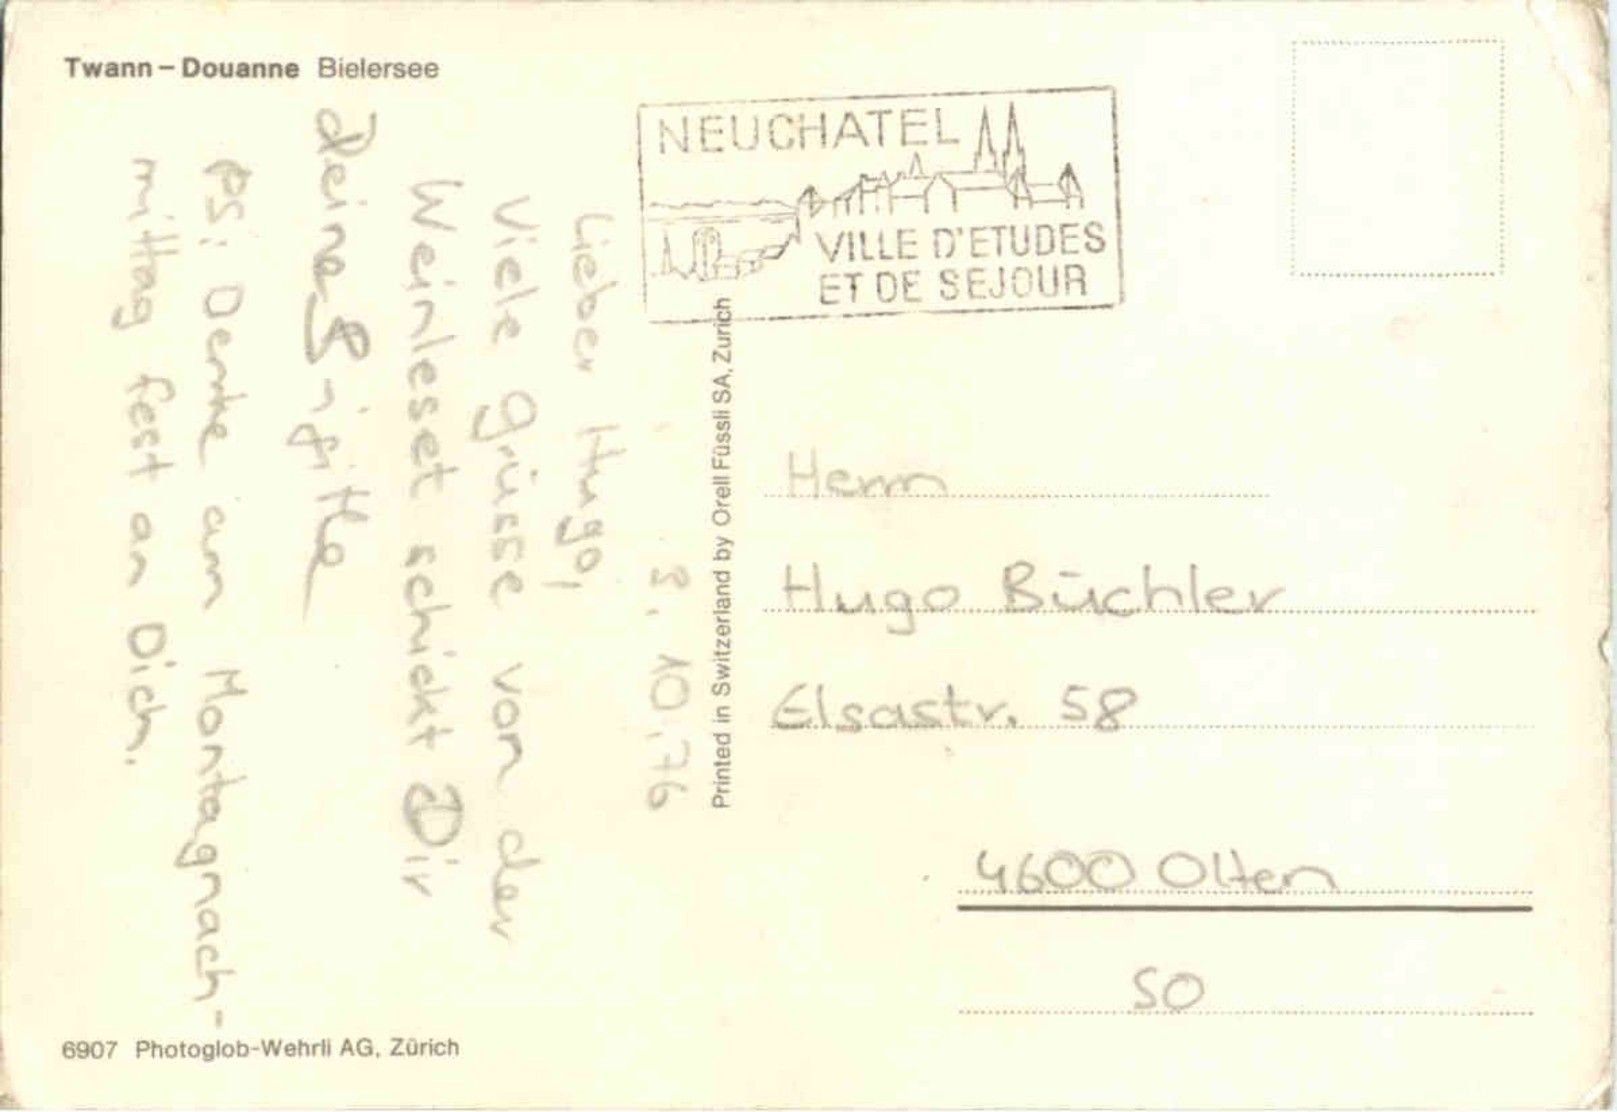 Twann – Douanne Bielersee
3.10.76
Lieber Hugo,
Viele Grüsse von der
Weinleset schickt Dir
Deine Brigitte
PS: Denke am Montagnach-
mittag fest an Dich.
6907 Photoglob-Wehrli AG, Zürich
Printed in Switzerland by Orell Füssli SA, Zurich
NEUCHATEL
VILLE D'ETUDES
ET DE SEJOUR
Herrn
Hugo Büchler
Elsastr. 58
4600 Olten
SO